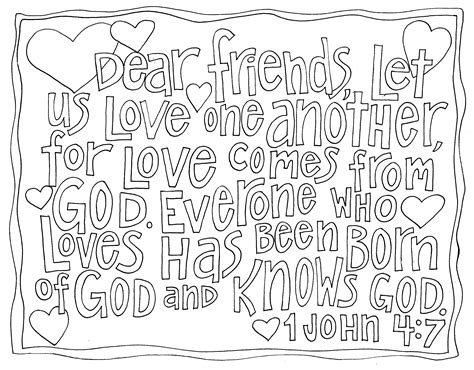 Dear friends, Let
us Love one another,
for Love comes from
GOD. Everone who
Loves Has Been Born
of GOD and Knows GOD.
1 John 4:7